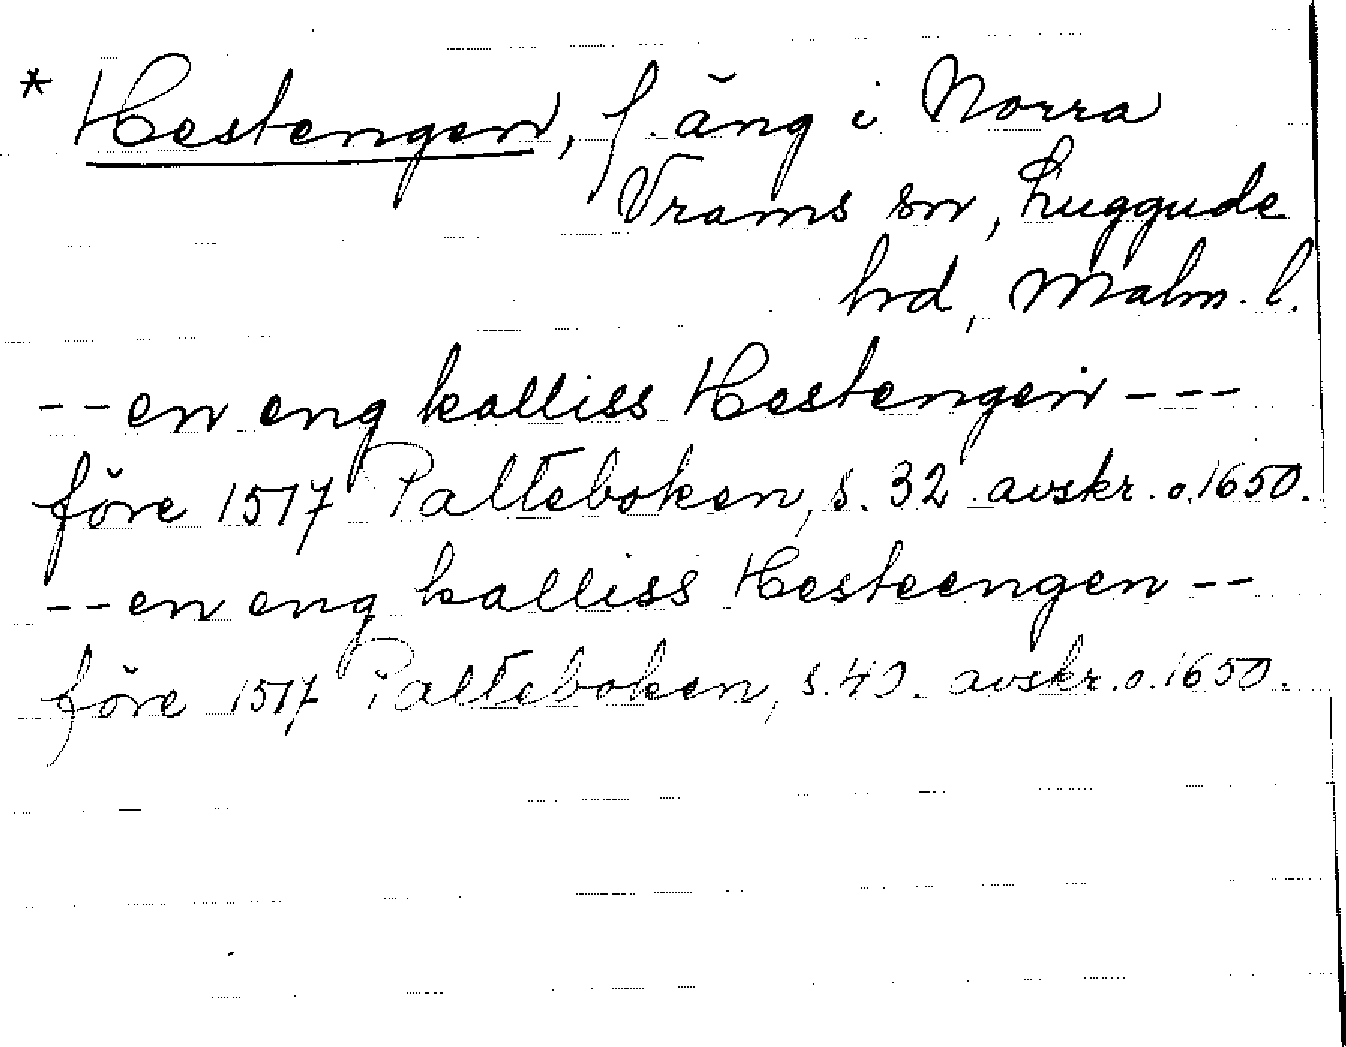 * Hestengen, f. äng i Norra
Vrams sn, Luggude
hd, Malm. l.
--en eng kalliss Hestengen---
före 1517 Palteboken, s. 32 avskr. o. 1650.
--en eng kalliss Hesteengen--
före 1517 Palteboken, s. 40. avskr. o. 1650.